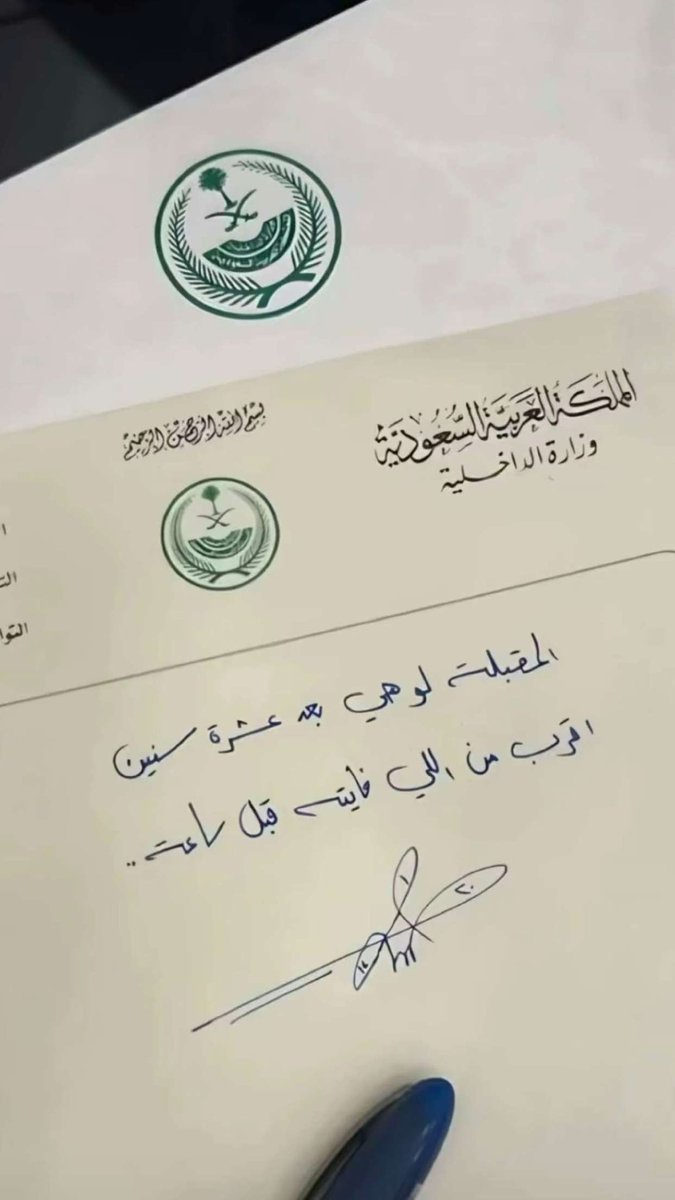 المملكة العربية السعودية
وزارة الداخلية
بسم الله الرحمن الرحيم
المقبلة لو هي بعد عشرة سنين
اقرب من اللي فايته قبل ساعة ..